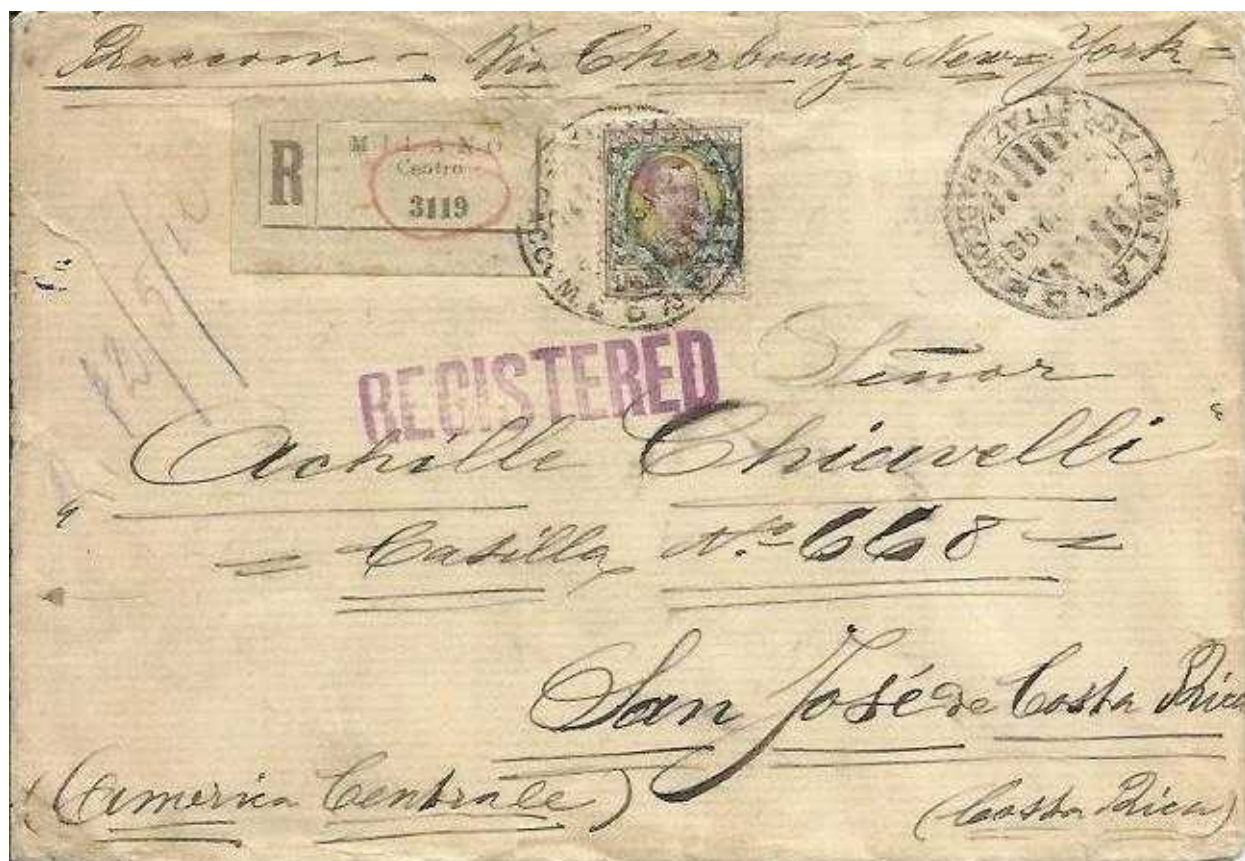 Raccom = Via Cherbourg = New=York =
R
MILANO
Centro
3119
REGISTERED
Señor
Achille Chiavelli
= Casilla Nº 668 =
San José de Costa Rica
(America Centrale)
(Costa Rica)